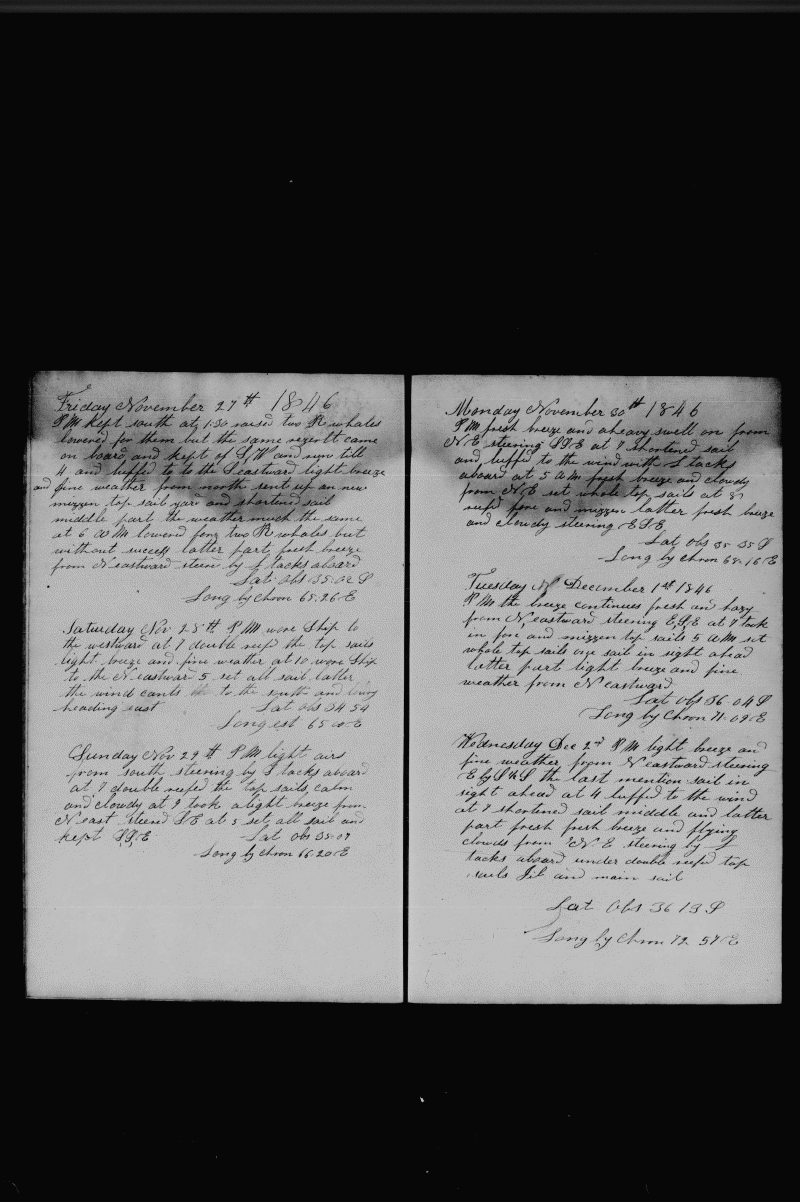 Friday November 27th 1846
P M kept south at 1.30 raised two R whales
lowered for them but the same result came
on board and kept of S W and run till
4 and luffed to to the S eastward light breeze
and fine weather from north sent up an new
mizzen top sail yard and shortened sail
middle part the weather much the same
at 6 A M lowered for two R whales but
without success latter part fresh breeze
from N eastward steen by S tacks aboard
Lat obs 35.02 S
Long by chron 65.26 E
Saturday Nov 28th P M wore Ship to
the westward at 7 double reefd the top sails
light breeze and fine weather at 10 wore Ship
to the N eastward 5 set all sail latter
the wind cants to the south and
heading east Lat obs 34 54
Long est 65 00 E
Sunday Nov 29th P M light airs
from south steering by S tacks aboard
at 7 double reefed the top sails calm
and cloudy at 9 took a light breeze from
N east steerd S E at 5 set all sail and
kept S,S,E Lat obs 35.07
Long by chron 66.20 E
Monday November 30th 1846
P M fresh breeze and a heavy swell on from
N. E steering S.S.E at 7 shortened sail
and luffed to the wind with S tacks
aboard at 5 A M fresh breeze and cloudy
from N,E set whole top sails at 8
reefd fore and mizzen latter fresh breeze
and cloudy steering E S,E
Lat obs 35 35 S
Long by chron 68.16 E
Tuesday December 1st 1846
P Mm the breeze continues fresh and hazy
from N,eastward steering E,S,E at 7 took
in fore and mizzen top sails 5 A M set
whole top sails one sail in sight ahead
latter part light breeze and fine
weather from N eastward
Lat obs 36.04 S
Long by Chron 71.09 E
Wednesday Dec 2nd P M light breeze and
fine weather from N eastward steering
E by S ½ S the last mention sail in
sight ahead at 4 luffed to the wind
at 7 shortened sail middle and latter
part fresh fresh breeze and flying
clouds from N E steering by S
tacks aboard under double reefd top
sails Jib and main sail
Lat Obs 36 13 S
Long by Chron 72 57 E